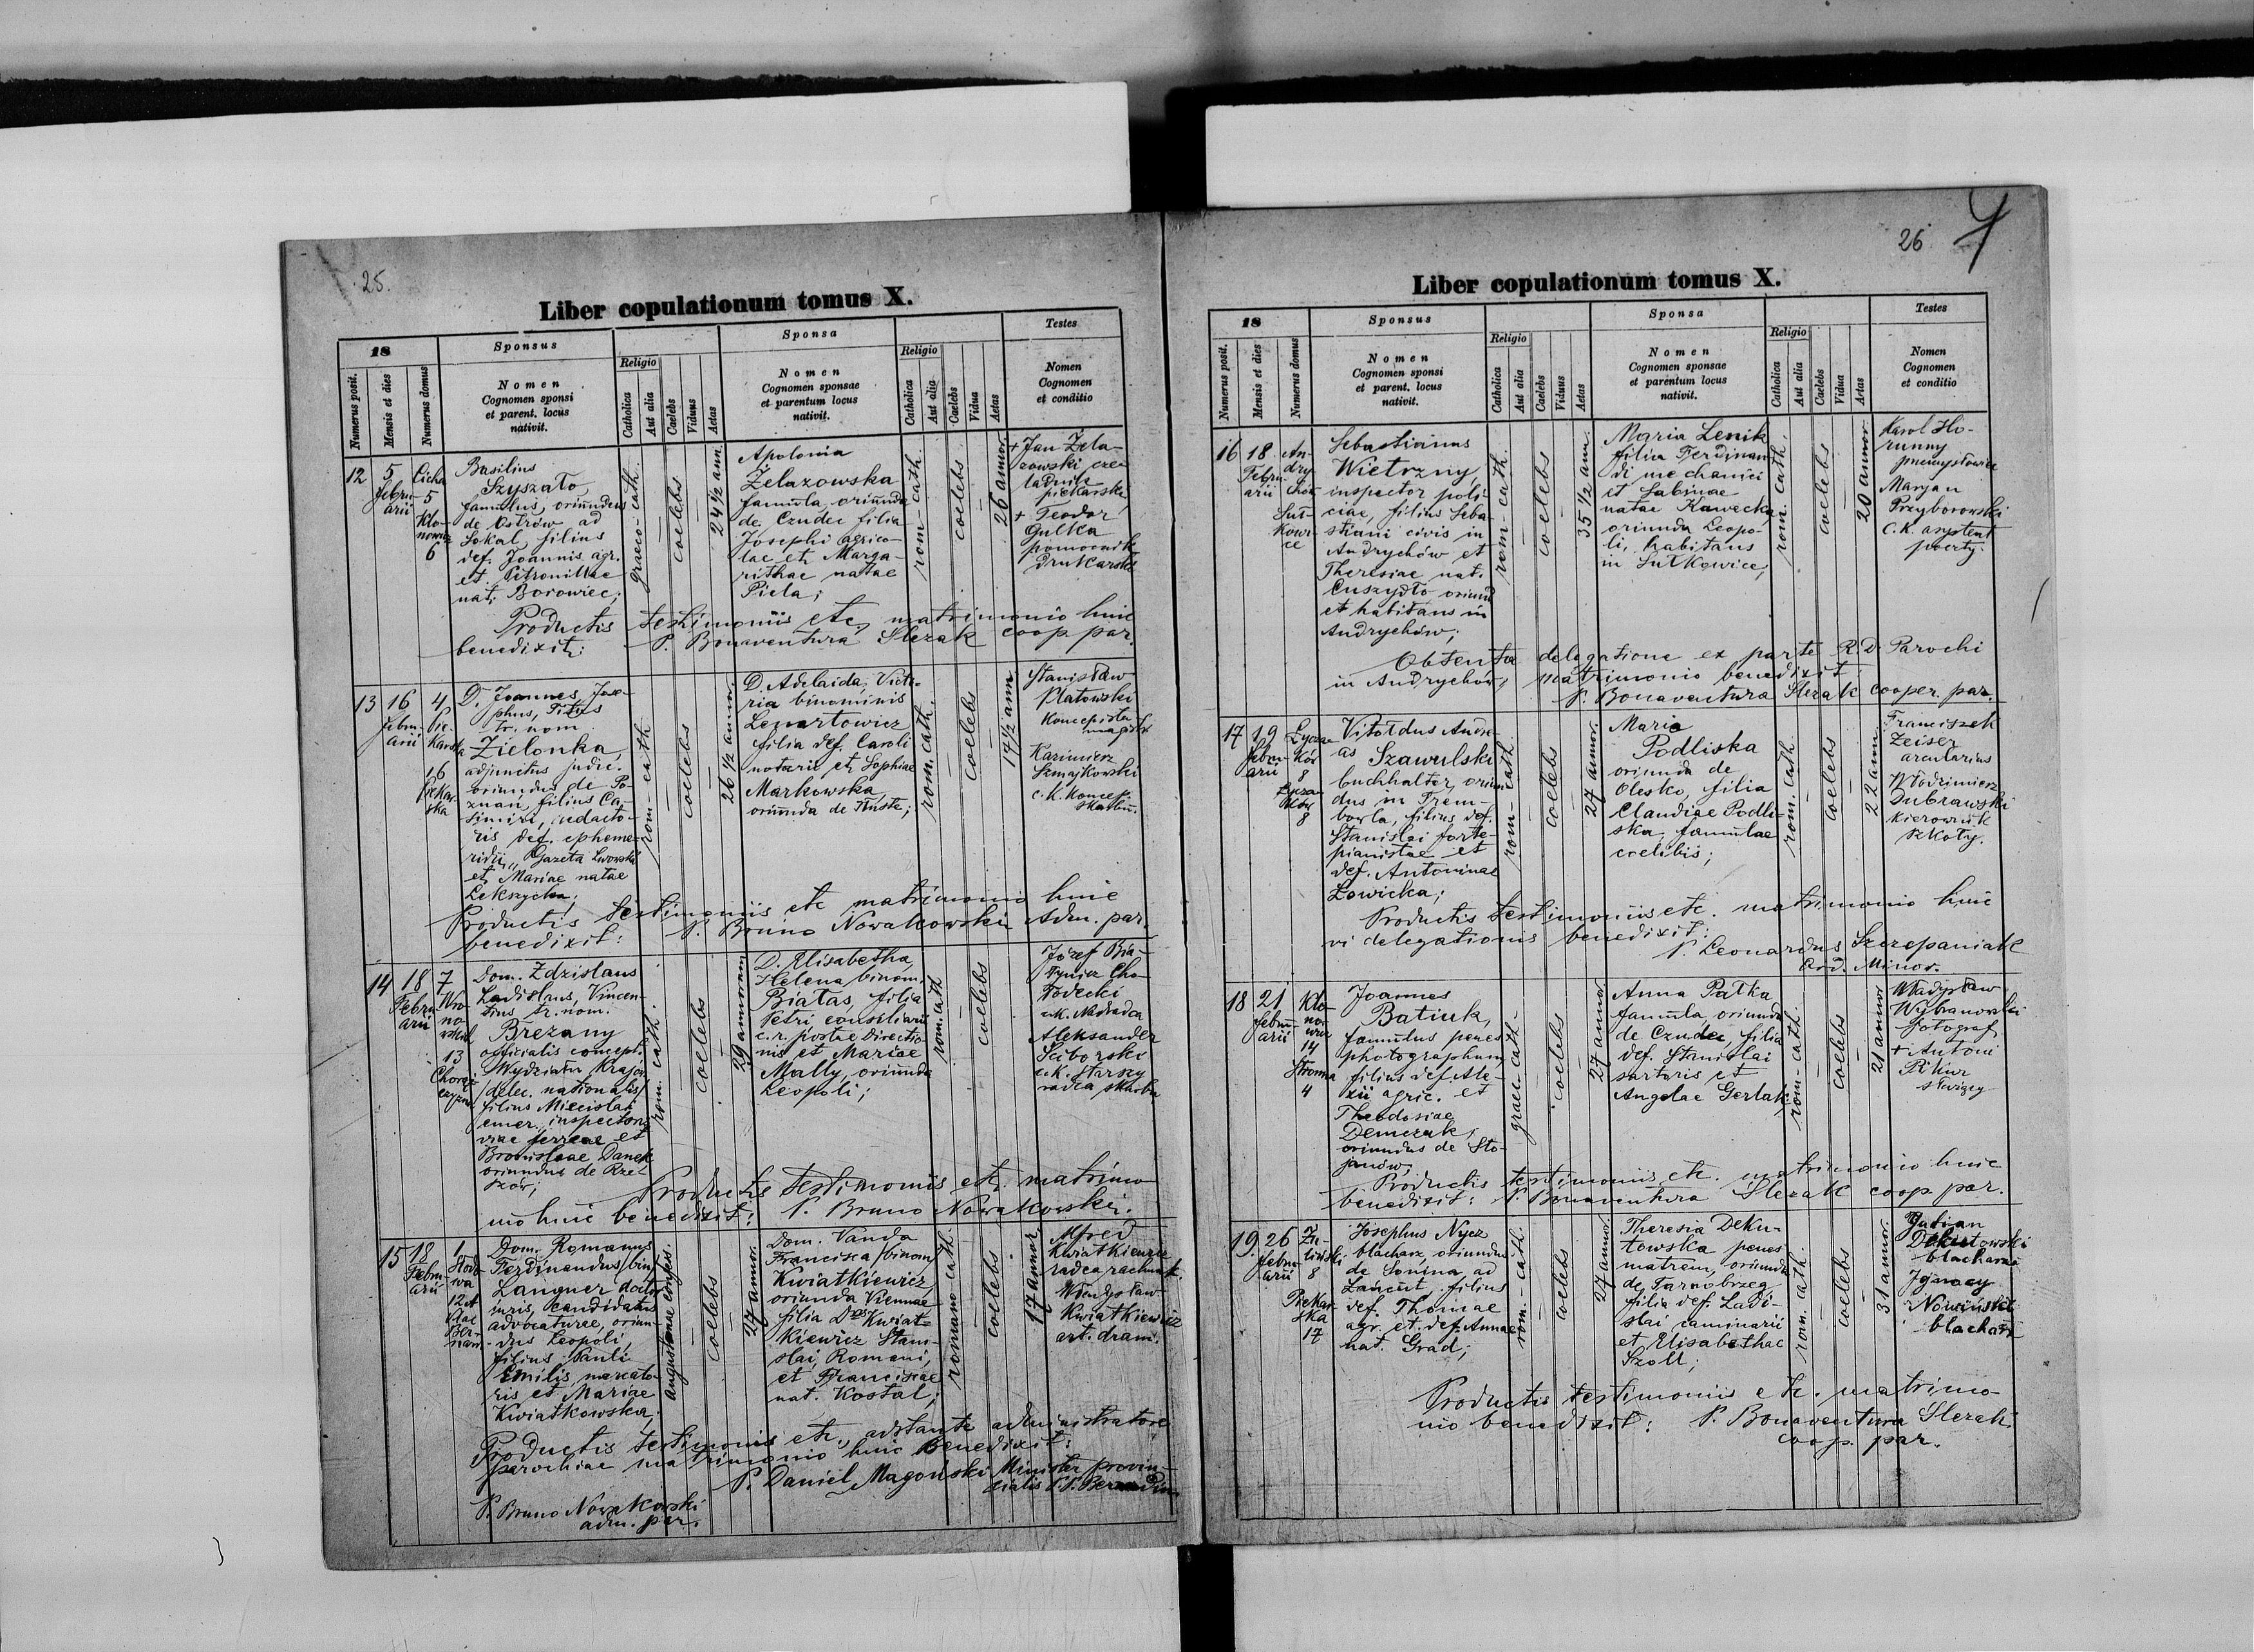 25.
Liber copulationum tomus X.
18
Sponsus
Sponsa
Testes
Numerus posit.
Mensis et dies
Numerus domus
Nomen
Cognomen sponsi
et parent. locus
nativit.
Religio
Catholica
Aut alia
Caelebs
Viduus
Aetas
Nomen
Cognomen sponsae
et parentum locus
nativit.
Religio
Catholica
Aut alia
Caelebs
Vidua
Aetas
Nomen
Cognomen
et conditio
12
5
Febru-
arii
Cicha
5
Klo-
nowicz
6
Basilius
Szyszało
famulus, oriundus
de Ostrów ad
Sokal, filius
def. Joannis agr.
et Petronillae
nat. Borowiec;
graeco-cath.
coelebs
24 1/2 ann.
Apolonia
Żelazowska
famula, oriunda
de Czudec filia
Josephi agrico-
lae et Marga-
rithae natae
Pieta;
rom-cath.
coelebs
26 annor.
+ Jan Żela-
zowski cze-
ladnik
piekarski
+ Teodor
Gulka
pomocnik
drukarski
Productis testimoniis etc. matrimonio huic
benedixit: P. Bonaventura Ślezak coop. par.
13
16
Febru-
arii
4
Pie-
karska
16
Piekar-
ska
D. Joannes, Jose-
phus, Titus
tr. nom.
Zielonka
adjunctus judic.
oriundus de Po-
znan, filius Ca-
simiri, redacto-
ris def. epheme-
ridii "Gazeta Lwowska"
et Mariae natae
rom-cath
coelebs
26 1/2 annor.
D. Adelaida, Victo-
ria binominis
Lenartowicz
filia def. Caroli
notarii et Sophiae
Markowska,
oriunda de Tłuste;
rom. cath.
coelebs
17 1/2 ann
Stanisław
Platowski
Koncepista
magistr.
Kazimierz
Szmajkowski
c. k. Koncep.
skarbu.
Productis testimoniis etc matrimonio huic
benedixit: P. Bruno Nowakowski Adm. par.
14
18
Febru-
arii
7
Wro-
no-
wska
13
Chorąż-
czyzna
Dom. Zdzislaus
Ladislaus, Vincen-
tius tr. nom.
Brezany
officialis concept.
Wydziału Kraj.
/delec. nationalis/
filius Miecislai
emer. inspectoris
viae ferreae et
Bronislaae Danek
oriundus de Rze-
szów;
rom. cath.
coelebs
29 annorum
D. Elisabetha,
Helena binom.
Białas, filia
Petri consiliarii
c. r. postae Directio-
nis et Mariae
Mally, oriunda
Leopoli;
rom. cath
coelebs
Józef Bia-
łynia Cho-
łodecki
c.k. Nadradca
Aleksander
Ściborski
c.k. starszy
radca skarbu
Productis testimoniis etc. matrimo-
nio huic benedixit: P. Bruno Nowakowski.
15
18
Febru-
arii
1
Słodo-
wa
12A
Plac
Ber-
nar-
Dom. Romanus
Ferdinandus /bin/
Langner doctor
juris, candidatus
advocaturae, oriun-
dus Leopoli,
filius Pauli
Emilis, mercato-
ris et Mariae
Kwiatkowska;
augustanae confess.
coelebs
27 annor.
Dom. Vanda
Francisca /binom/
Kwiatkiewicz
oriunda Viennae
filia Dris Kwiat-
kiewicz Stani-
slai, Romani,
et Franciscae
nat. Kostal;
romano cath.
coelebs
17 annor.
Alfred
Kwiatkiewicz
radca rachunk.
Władysław
Kwiatkiewicz
art. dram.
Productis testimoniis etc, adstante administratore
parochiae matrimonio huic benedixit:
P. Daniel Magoński Minister provin-
cialis P.P. Bernardin.
P. Bruno Nowakowski
adm. par.
26
Liber copulationum tomus X.
18
Sponsus
Sponsa
Testes
Numerus posit.
Mensis et dies
Numerus domus
Nomen
Cognomen sponsi
et parent. locus
nativit.
Religio
Catholica
Aut alia
Caelebs
Viduus
Aetas
Nomen
Cognomen sponsae
et parentum locus
nativit.
Religio
Catholica
Aut alia
Caelebs
Vidua
Aetas
Nomen
Cognomen
et conditio
16
18
Febru-
arii
An-
dry-
chów
Suł-
kowi-
ce
Sebastianus
Wietrzny
inspector poli-
ciae, filius Seba-
stiani civis in
Andrychów et
Theresiae nat.
Cuszydło oriund
et habitans in
Andrychów;
rom-cath.
coelebs
35 1/2 ann.
Maria Lenik
filia Ferdinan-
di mechanici
et Sabinae
natae Kawecka,
oriunda Leopo-
li, habitans
in Sułkowice;
rom. cath.
coelebs
20 annor.
Karol Ho-
runny
przemysłowiec
Maryan
Przyborowski
c.k. asystent
poczty.
Obtenta delegatione ex parte R.d. Parochi
in Andrychów, matrimonio benedixit
P. Bonaventura Ślezak cooper. par.
17
19
Febru-
arii
Łycza-
ków
8
8
Vitoldus Andre-
as Szawulski
buchhalter, oriun
dus in Trem-
bowla, filius def.
Stanislai forte-
pianistae et
def. Antoninae
Łowicka;
rom-cath.
coelebs
27 annor.
Maria
Podliska
oriunda de
Olesko, filia
Claudiae Podli-
ska famulae
coelibis;
rom. cath.
coelebs
22 ann.
Franciszek
Zeiser
arcularius
Włodzimierz
Dubrawski
Kierownik
szkoły.
Productis testimoniis etc. matrimonio huic
vi delegationis benedixit:
P. Leonardus Szczepaniak
Ord. Minor.
18
21
Febru-
arii
Klo-
no-
wicz
14
Stroma
4
Joannes
Batiuk,
famulus penes
photographum,
filius def. Ale-
xii agric. et
Theodosiae
Demczuk;
oriundus de Sto-
janów;
graec-cath.
coelebs
27 annor.
Anna Pałka
famula, oriunda
de Czudec, filia
def. Stanislai
sartoris et
Angelae Gerlak;
rom-cath.
coelebs
21 annor
Władysław
Wybranowski
fotograf
+ Antoni
Pikur
służący
Productis testimoniis etc. matrimonio huic
benedixit: P. Bonaventura Ślezak coop. par.
19.
26
Febru-
arii
8
Piekar-
ska
17
Josephus Nycz
blacharz, oriundus
de Sonina ad
Łańcut filius
def. Thomae
agr. et def. Annae
nat. Grad;
rom.-cath.
coelebs
27 annor.
Theresia Deku-
towska penes
matrem, oriunda
de Tarnobrzeg
filia def. Ladi-
slai caminarii
et Elisabethae
Szoll;
rom. cath.
coelebs
31 annor.
Julian
Dekutowski
blacharz
Ignacy
Nowiński
blacharz
Productis testimoniis etc. matrimo-
nio benedixit: P. Bonaventura Ślezak
coop. par.